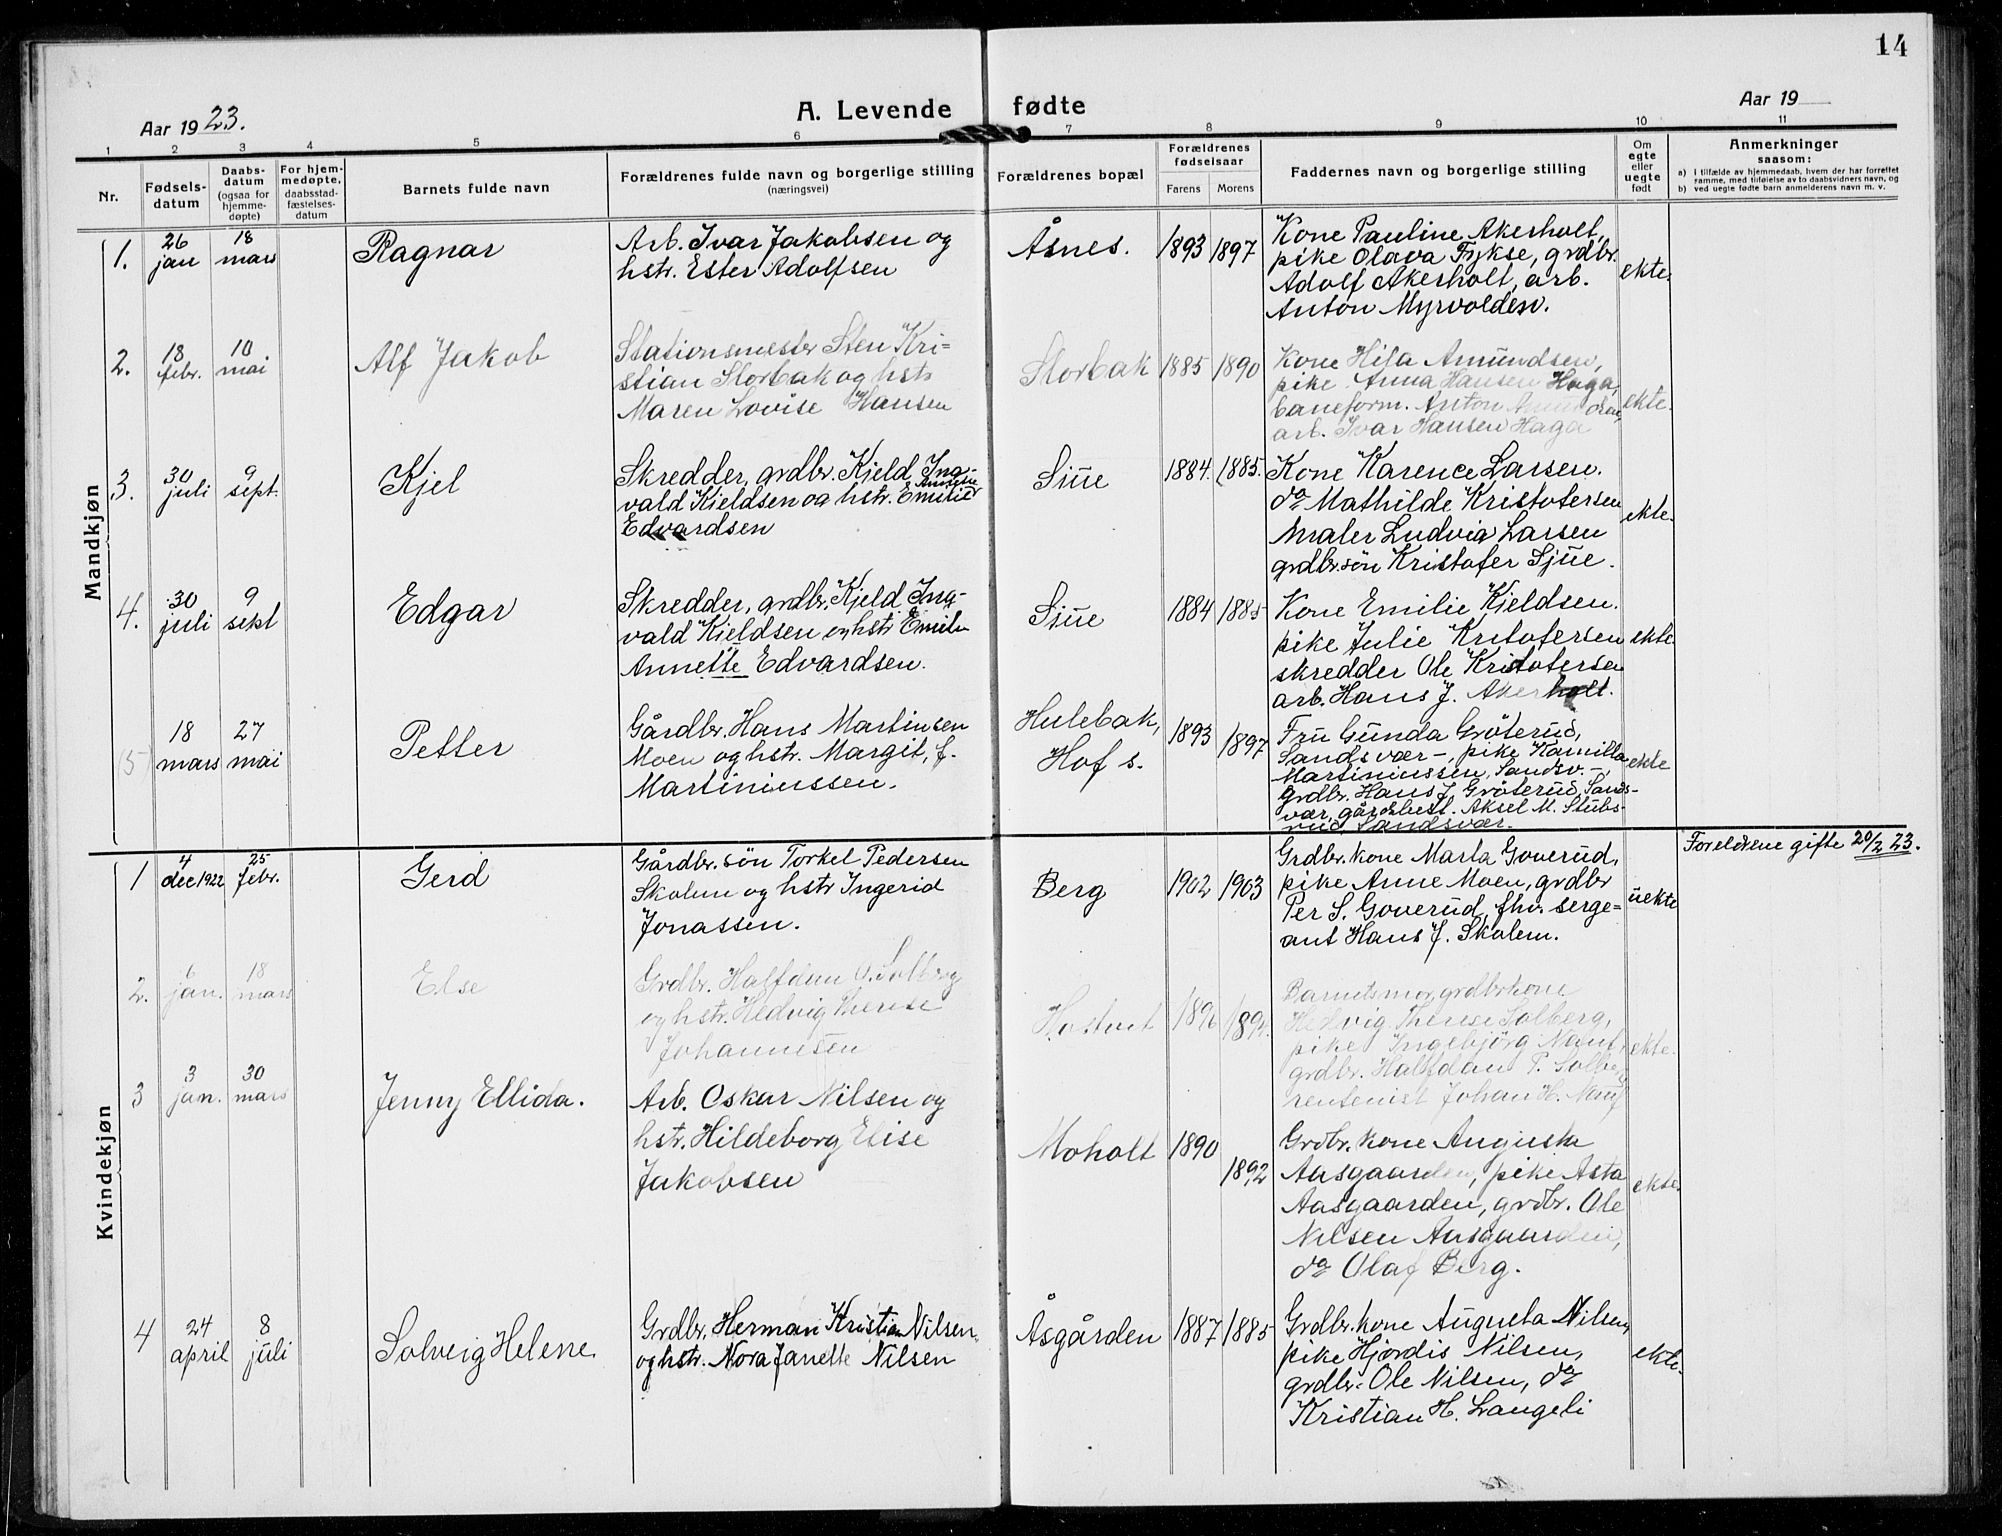 14
Aar 1923.
A. Levende fødte
Aar 19
1 2 3 4 5 6 7 8 9 10 11
Nr.
Fødsels-
datum
Daabs-
datum
(ogsaa for
hjemme-
døpte)
For hjem-
medøpte,
daabsstad-
fæstelses-
datum
Barnets fulde navn
Forældrenes fulde navn og borgerlige stilling
(næringsvei)
Forældrenes bopæl
Forældrenes
fødselsaar
Farens Morens
Faddernes navn og borgerlige stilling
Om
egte
eller
uegte
født
Anmerkninger
saasom:
a) I tilfælde av hjemmedaab, hvem der har forrettet
samme, med tilføielse av to daabsvidners navn, og
b) ved uegte fødte barn anmelderens navn m. v.
Mandkjøn
1.
26
jan
18
mars
Ragnar
Arb. Ivar Jakobsen og
hstr. Ester Adolfsen
Åsnes.
1893 1897
Kone Pauline Akerholt,
pike Olava Fykse, grdbr.
Adolf Akerholt, arb.
Anton Myrvolden.
ekte.
2.
18
febr.
10
mai
Alf Jakob
Stationsmester Sten Kri-
stian Storbak og hstr
Maren Lovise Hansen
Storbak
1885 1890
Kone Hila Amundsen,
pike Anna Hansen Haga,
baneform. Anton
arb. Ivar Hansen Haga
ekte.
3.
30
juli
9
sept.
Kjel
Skredder, grdbr. Kjeld Ing-
vald Kjeldsen og hstr. Emilie Annette
Edvardsen
Sjue
1884. 1885.
Kone Karence Larsen.
do Mathilde Kristofersen
Maler Ludvig Larsen
grdbr.søn Kristofer Sjue.
ekte.
4.
30
juli
9
sept
Edgar
Skredder, grdbr. Kjeld Ing-
vald Kjeldsen og hstr Emilie
Annette Edvardsen.
Sjue
1884 1885
Kone Emilie Kjeldsen.
pike Julie Kristofersen
skredder Ole Kristofersen
arb. Hans J. Akerholt.
ekte.
5
18
mars
27
mai
Petter
Gårdbr. Hans Martinsen
Moen og hstr. Margit, f.
Martiniussen.
Hulebak,
Hof s.
1893 1897
Fru Gunda Grøterud,
Sandsvær -, pike Kamilla
Martiniussen, Sandsv. -,
grdbr. Hans J. Grøterud, Sands-
vær, gårdbest. Aksel M. Stubs-
rud, Sandsvær.
ekte
Kvindekjøn
1
4
dec 1922
25
febr.
Gerd
Gårdbr. søn Torkel Pedersen
Skolem og hstr Ingerid
Jonassen.
Berg
1902 1903
Grdbr. kone Marta Goverud,
pike Anne Moen, grdbr
Per S. Goverud, fhv. serge-
ant Hans J. Skolem.
uekte
Foreldrene gifte 20/2 23.
2.
6
jan.
18
mars
Else
Grdbr. Halfdan O. Solberg
og hstr. Hedvig Therese
Johannesen
Hostvet
1896 1894.
Barnets mor, grdbrkone
Hedvig Therese Solberg,
pike Ingebjørg Nauf,
grdbr. Halfdan P. Solberg
rentenist Johan H. Nauf
ekte.
3
3
jan.
30
mars
Jenny Ellida.
Arb. Oskar Nilsen og
hstr. Hildeborg Elise
Jakobsen
Moholt
1890 1892
Grdbr. kone Augusta
Aasgaarden, pike Asta
Aasgaarden, grdbr. Ole
Nilsen Aasgaarden,
do Olaf Berg.
ekte.
4
24
april
8
juli
Solveig Helene.
Grdbr. Herman Kristian Nilsen
og hstr. Nora Janette Nilsen
Åsgården
1887 1885
Grdbr. kone Augusta Nilsen,
pike Hjørdis Nilsen,
grdbr. Ole Nilsen, do
Kristian H. Langeli
ekte.